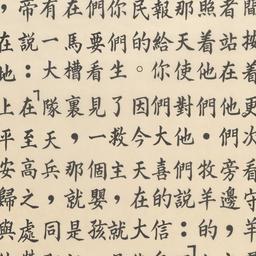 間按着更次看守羊
者站在他們旁邊，
照着他們・牧羊的
那天使對他們説：
報給你們大喜的信
民的。因今天在大
你們生了救主，就
們要看見一個嬰孩
在馬槽裏，那就是
有一大隊天兵同
帝説：﹁在至高之處
，在地上平安歸與